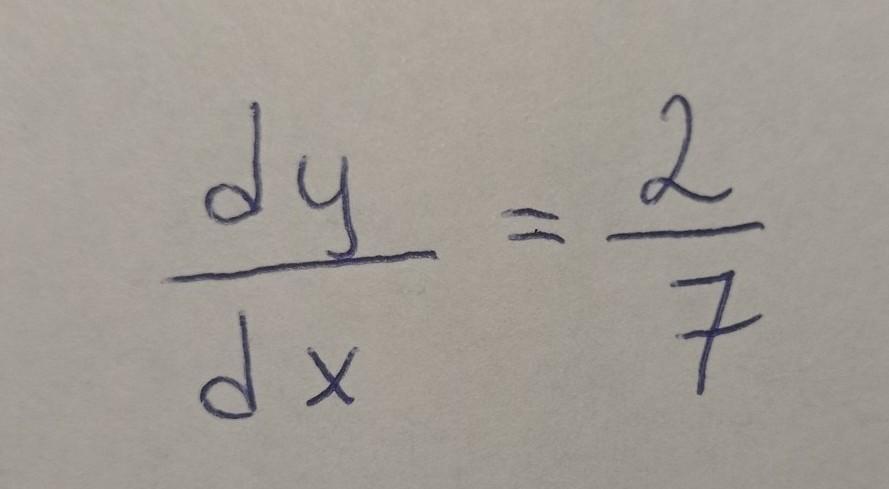 dy/dx = 2/7